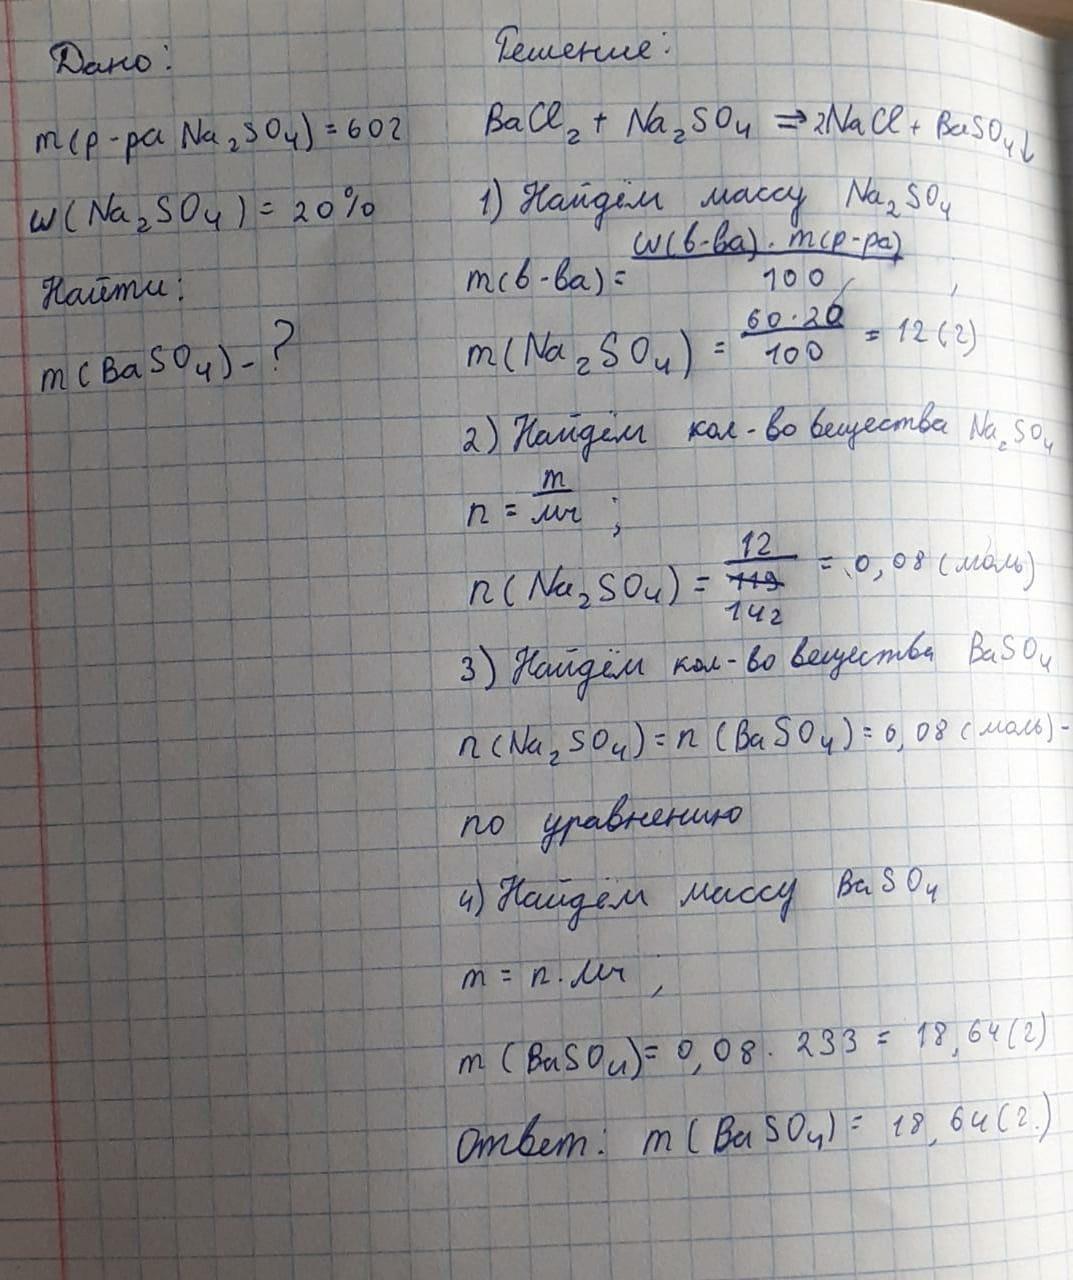 Дано:
m(р-ра Na₂SO₄) = 60 г
w(Na₂SO₄) = 20%
Найти:
m(BaSO₄) - ?
Решение:
BaCl₂ + Na₂SO₄ ⇒ 2NaCl + BaSO₄↓
1) Найдём массу Na₂SO₄
m(в-ва) = w(в-ва) · m(р-ра) / 100 ;
m(Na₂SO₄) = 60 · 20 / 100 = 12 (г)
2) Найдём кол-во вещества Na₂SO₄
n = m / Mr ;
n(Na₂SO₄) = 12 / 142 = 0,08 (моль)
3) Найдём кол-во вещества BaSO₄
n(Na₂SO₄) = n(BaSO₄) = 0,08 (моль) -
по уравнению
4) Найдём массу BaSO₄
m = n · Mr ;
m(BaSO₄) = 0,08 · 233 = 18,64 (г)
Ответ: m(BaSO₄) = 18,64 (г.)